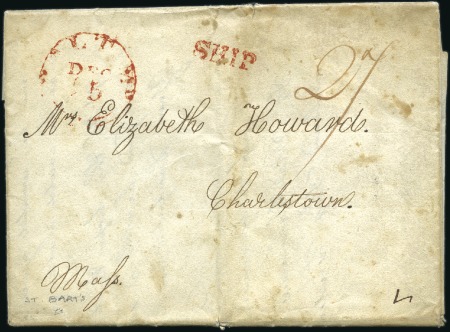 SHIP
27
DEC
5
Mrs. Elizabeth Howard.
Charlestown.
Mass.
ST BARTS